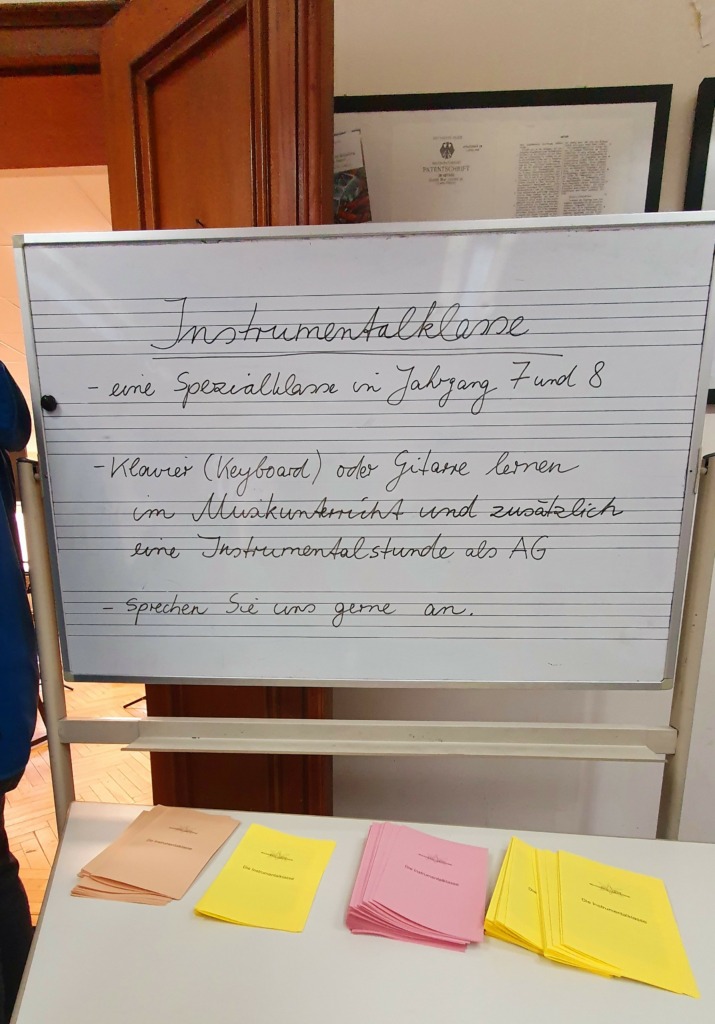 PATENTSCHRIFT
Instrumentalklasse
- eine Spezialklasse in Jahrgang 7 und 8
- Klavier (Keyboard) oder Gitarre lernen
im Musikunterricht und zusätzlich
eine Instrumentalstunde als AG
- sprechen Sie uns gerne an.
Die Instrumentalklasse
Die Instrumentalklasse
Die Instrumentalklasse
Die
Die Instrumentalklasse